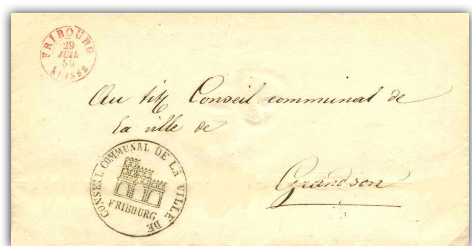 FRIBOURG
29
JUIL
SUISSE
Au tit Conseil communal de
la ville de
Grandson
CONSEIL COMMUNAL DE LA VILLE DE
FRIBOURG